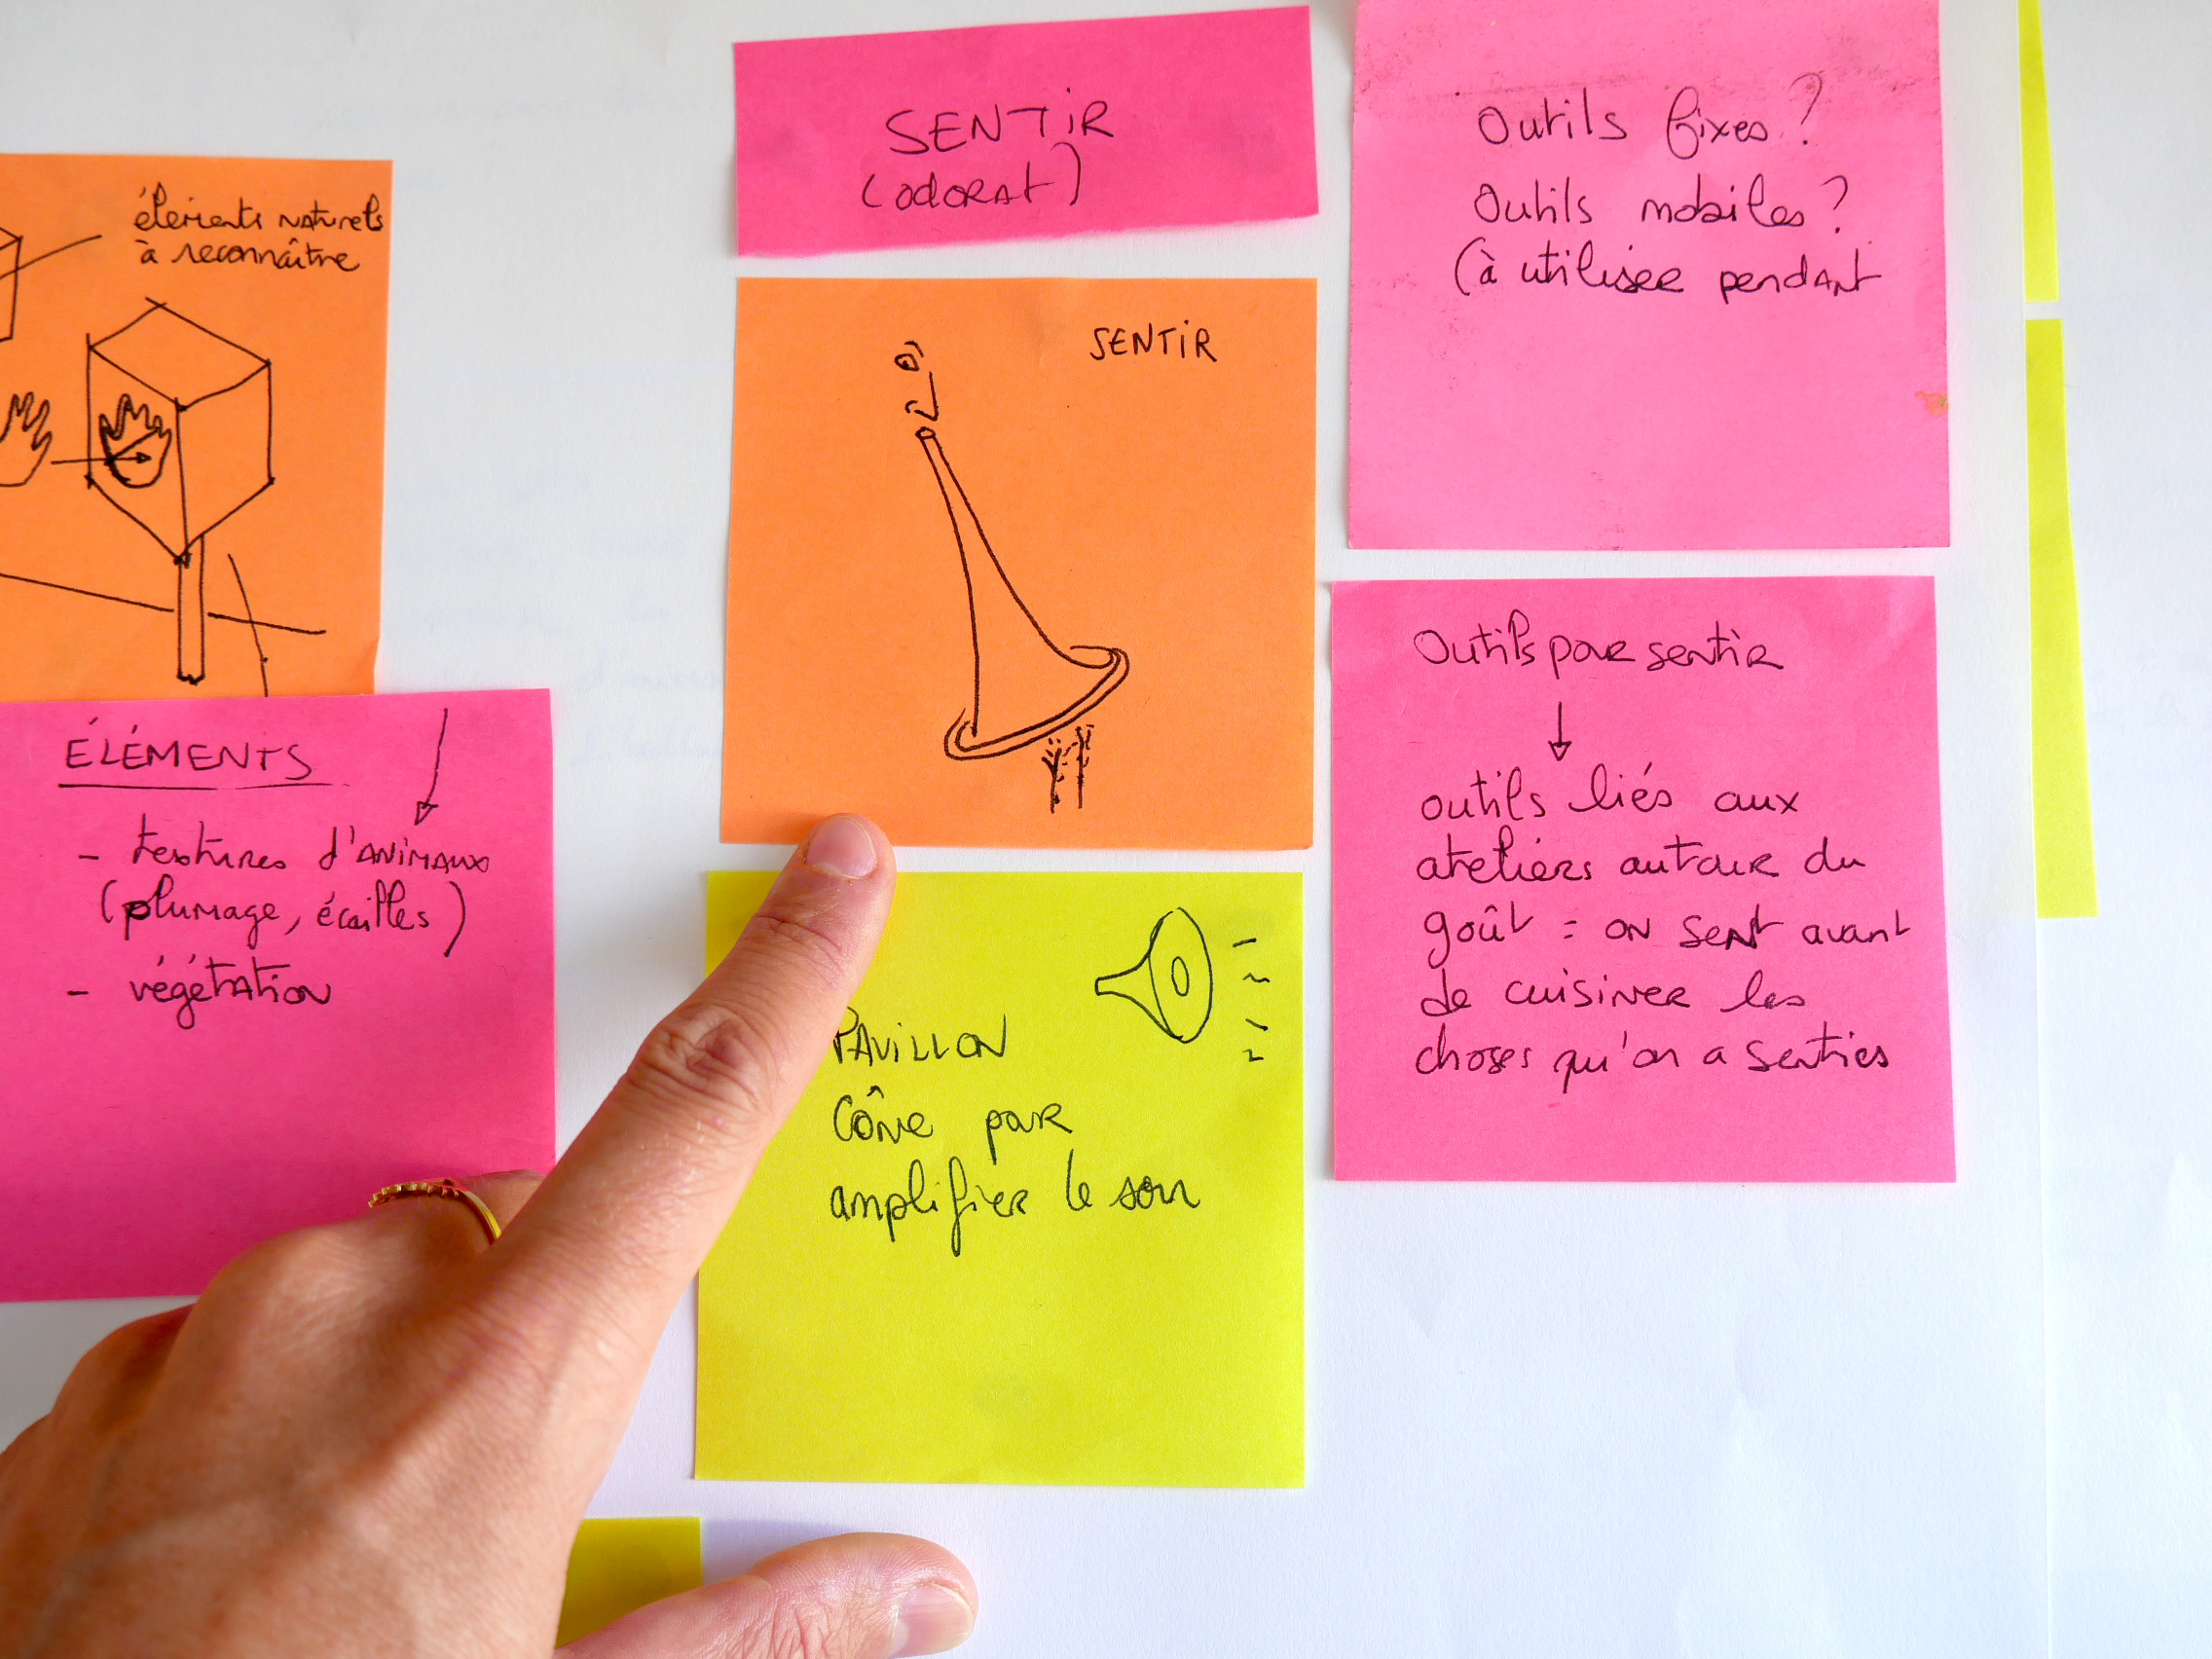 éléments naturels
à reconnaître
ÉLÉMENTS
- textures d'animaux
(plumage, écailles)
- végétation
SENTIR
(odorat)
SENTIR
PAVILLON
Cône pour
amplifier le son
Outils fixes ?
Outils mobiles ?
(à utiliser pendant
Outils pour sentir
outils liés aux
ateliers autour du
goût = on sent avant
de cuisiner les
choses qu'on a senties